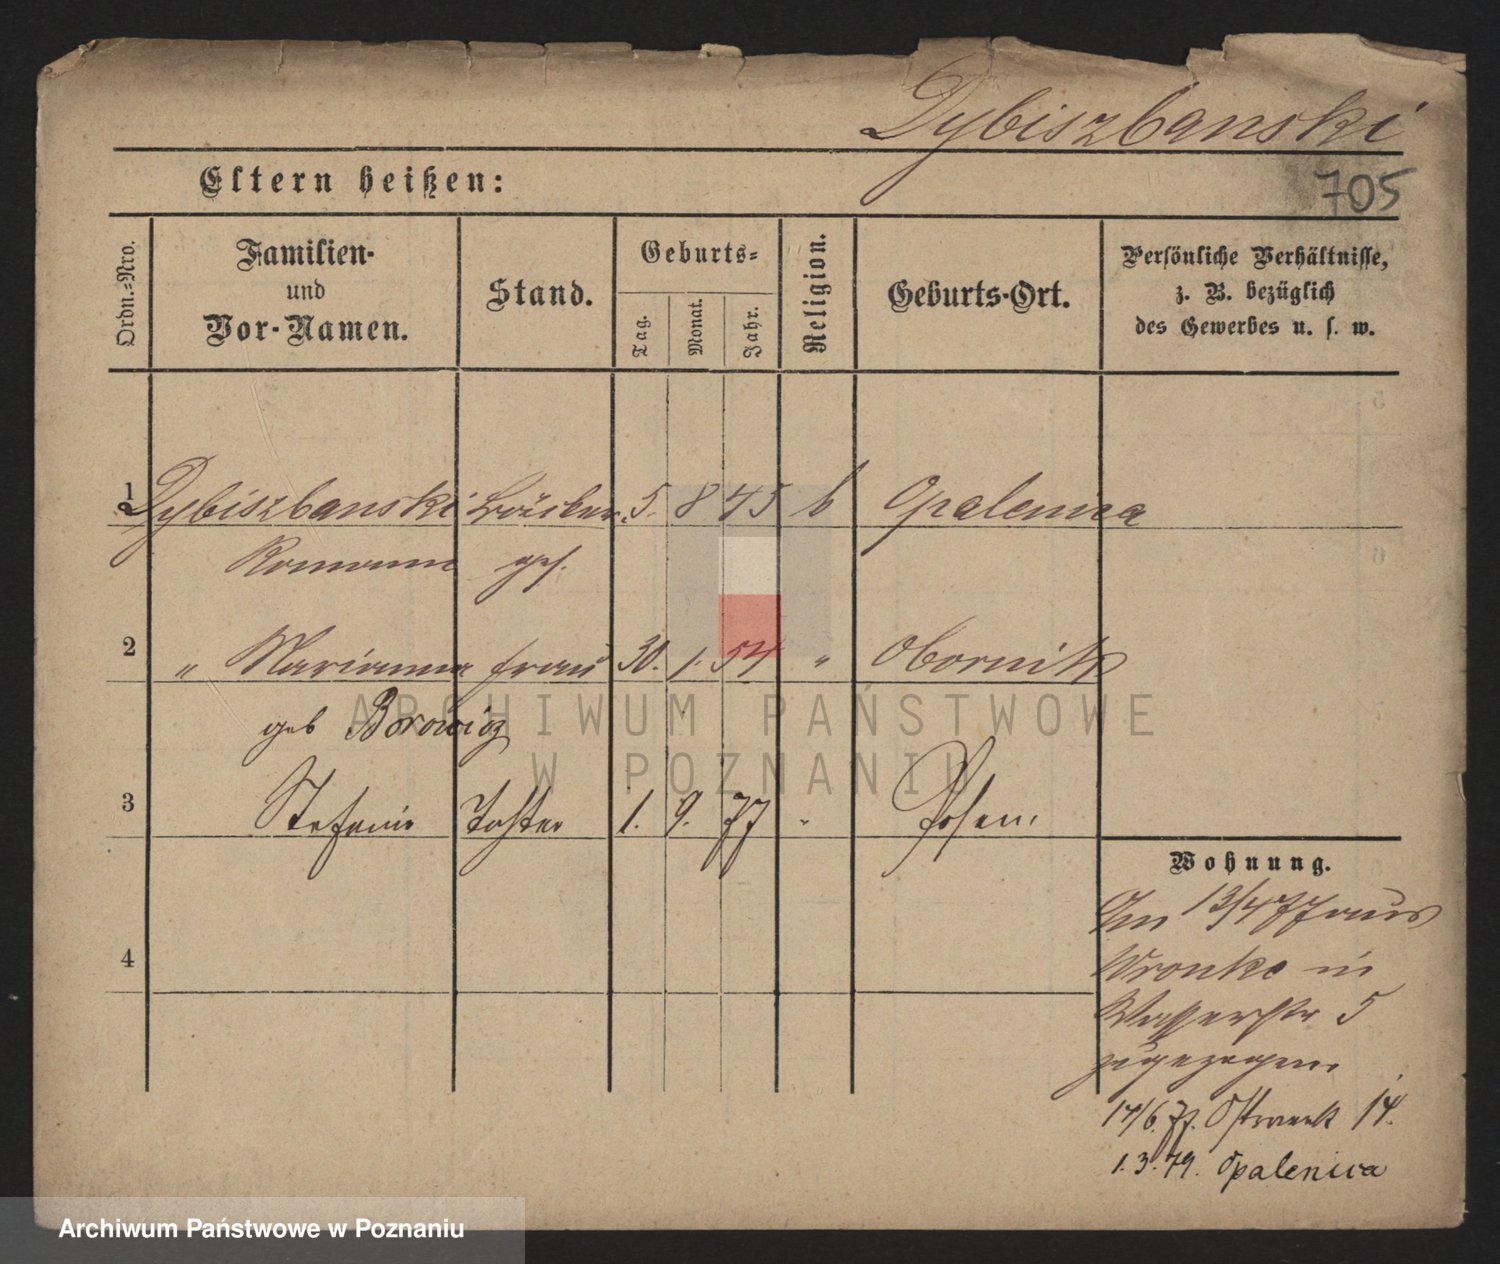 Dybiszbanski
705
Eltern heißen:
Ordn.-Nro.
Familien-
und
Vor-Namen.
Stand.
Geburts-
Tag.
Monat.
Jahr.
Religion.
Geburts-Ort.
Persönliche Verhältnisse,
z. B. bezüglich
des Gewerbes u. s. w.
1 Dybiszbanski 5. 8 45 k Opalenica
Romann ges.
2 " Marianna Frau 30. 1. 54 " Obornik
geb Borowicz
3 Stefanie Tochter 1. 9. 77 " Posen
4
Wohnung.
Am 13/4 77 aus
Wronke in
Wasserstr 5
zugezogen
14/6. 77. Ostrowek 14.
1.3.79. Opalenica
ARCHIWUM PAŃSTWOWE
W POZNANIU
Archiwum Państwowe w Poznaniu